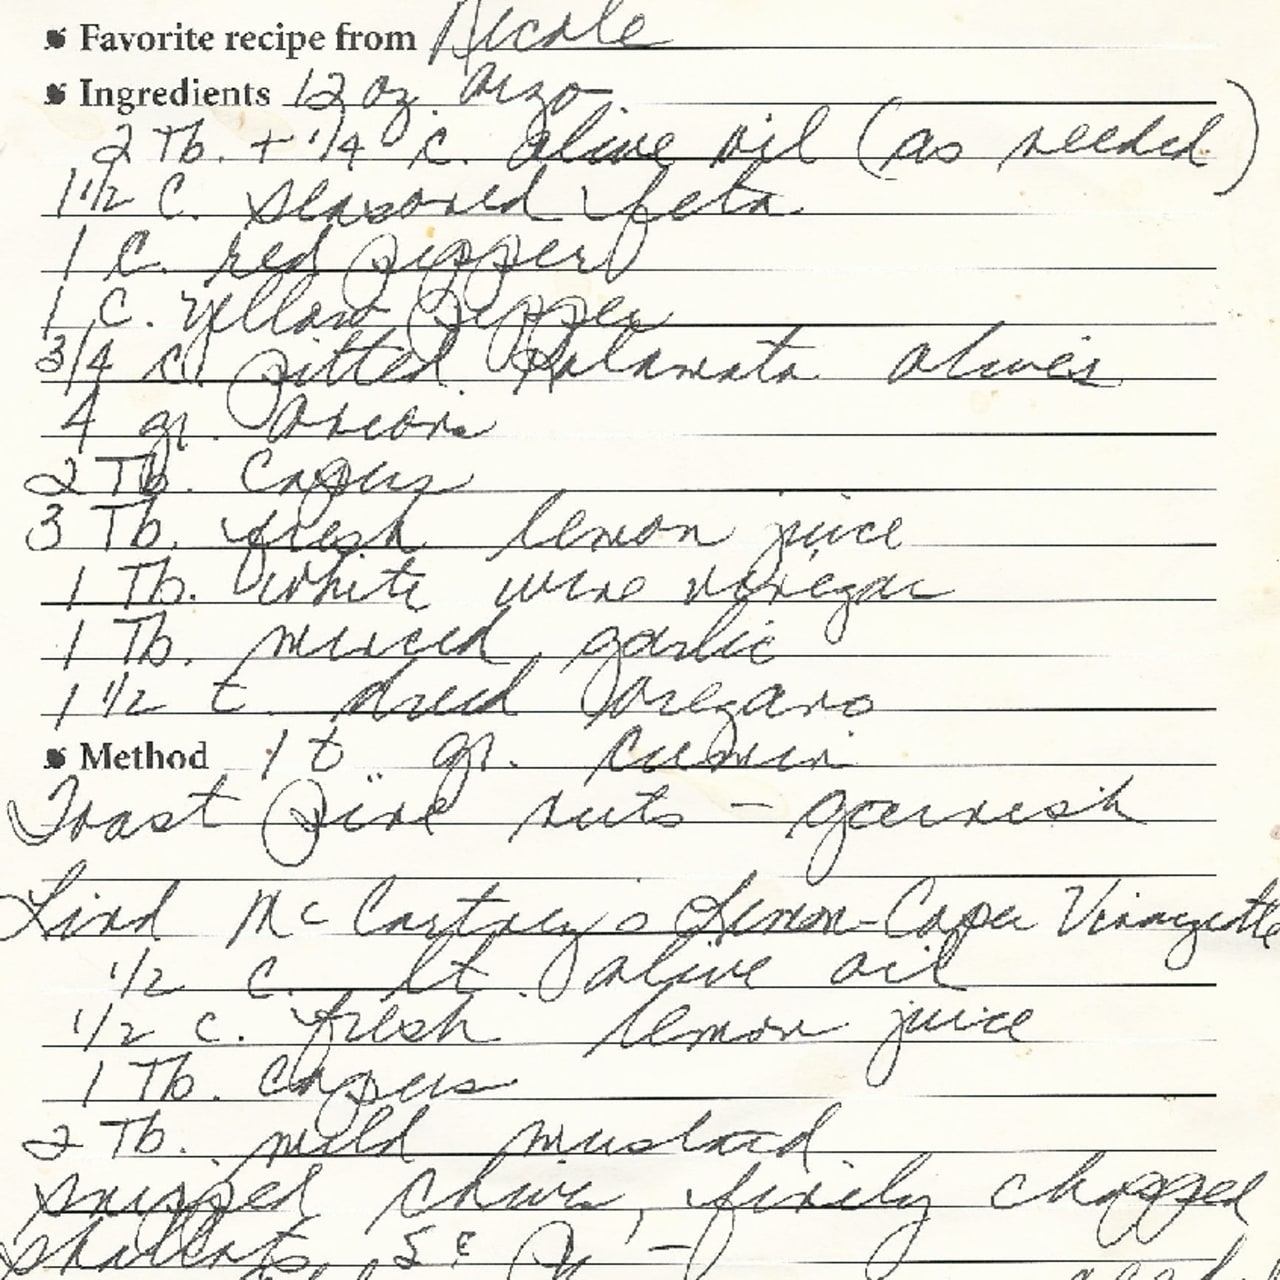 Favorite recipe from Nicole
Ingredients 12 oz. orzo
2 Tb. + 1/4 c. olive oil (as needed)
1 1/2 C. seasoned feta
1 C. red pepper
1 C. yellow pepper
3/4 c. pitted Kalamata olives
4 gr. onions
2 Tb. Capers
3 Tb. fresh lemon juice
1 Tb. white wine vinegar
1 Tb. minced garlic
1 1/2 t. dried oregano
Method 1 t gr. cumin
Toast pine nuts - garnish
Lind McCartney's Lemon-Caper Vinaigrette
1/2 c. lt. olive oil
1/2 c. fresh lemon juice
1 Tb. capers
2 Tb. mild mustard
snipped chives, finely chopped
shallots, S &